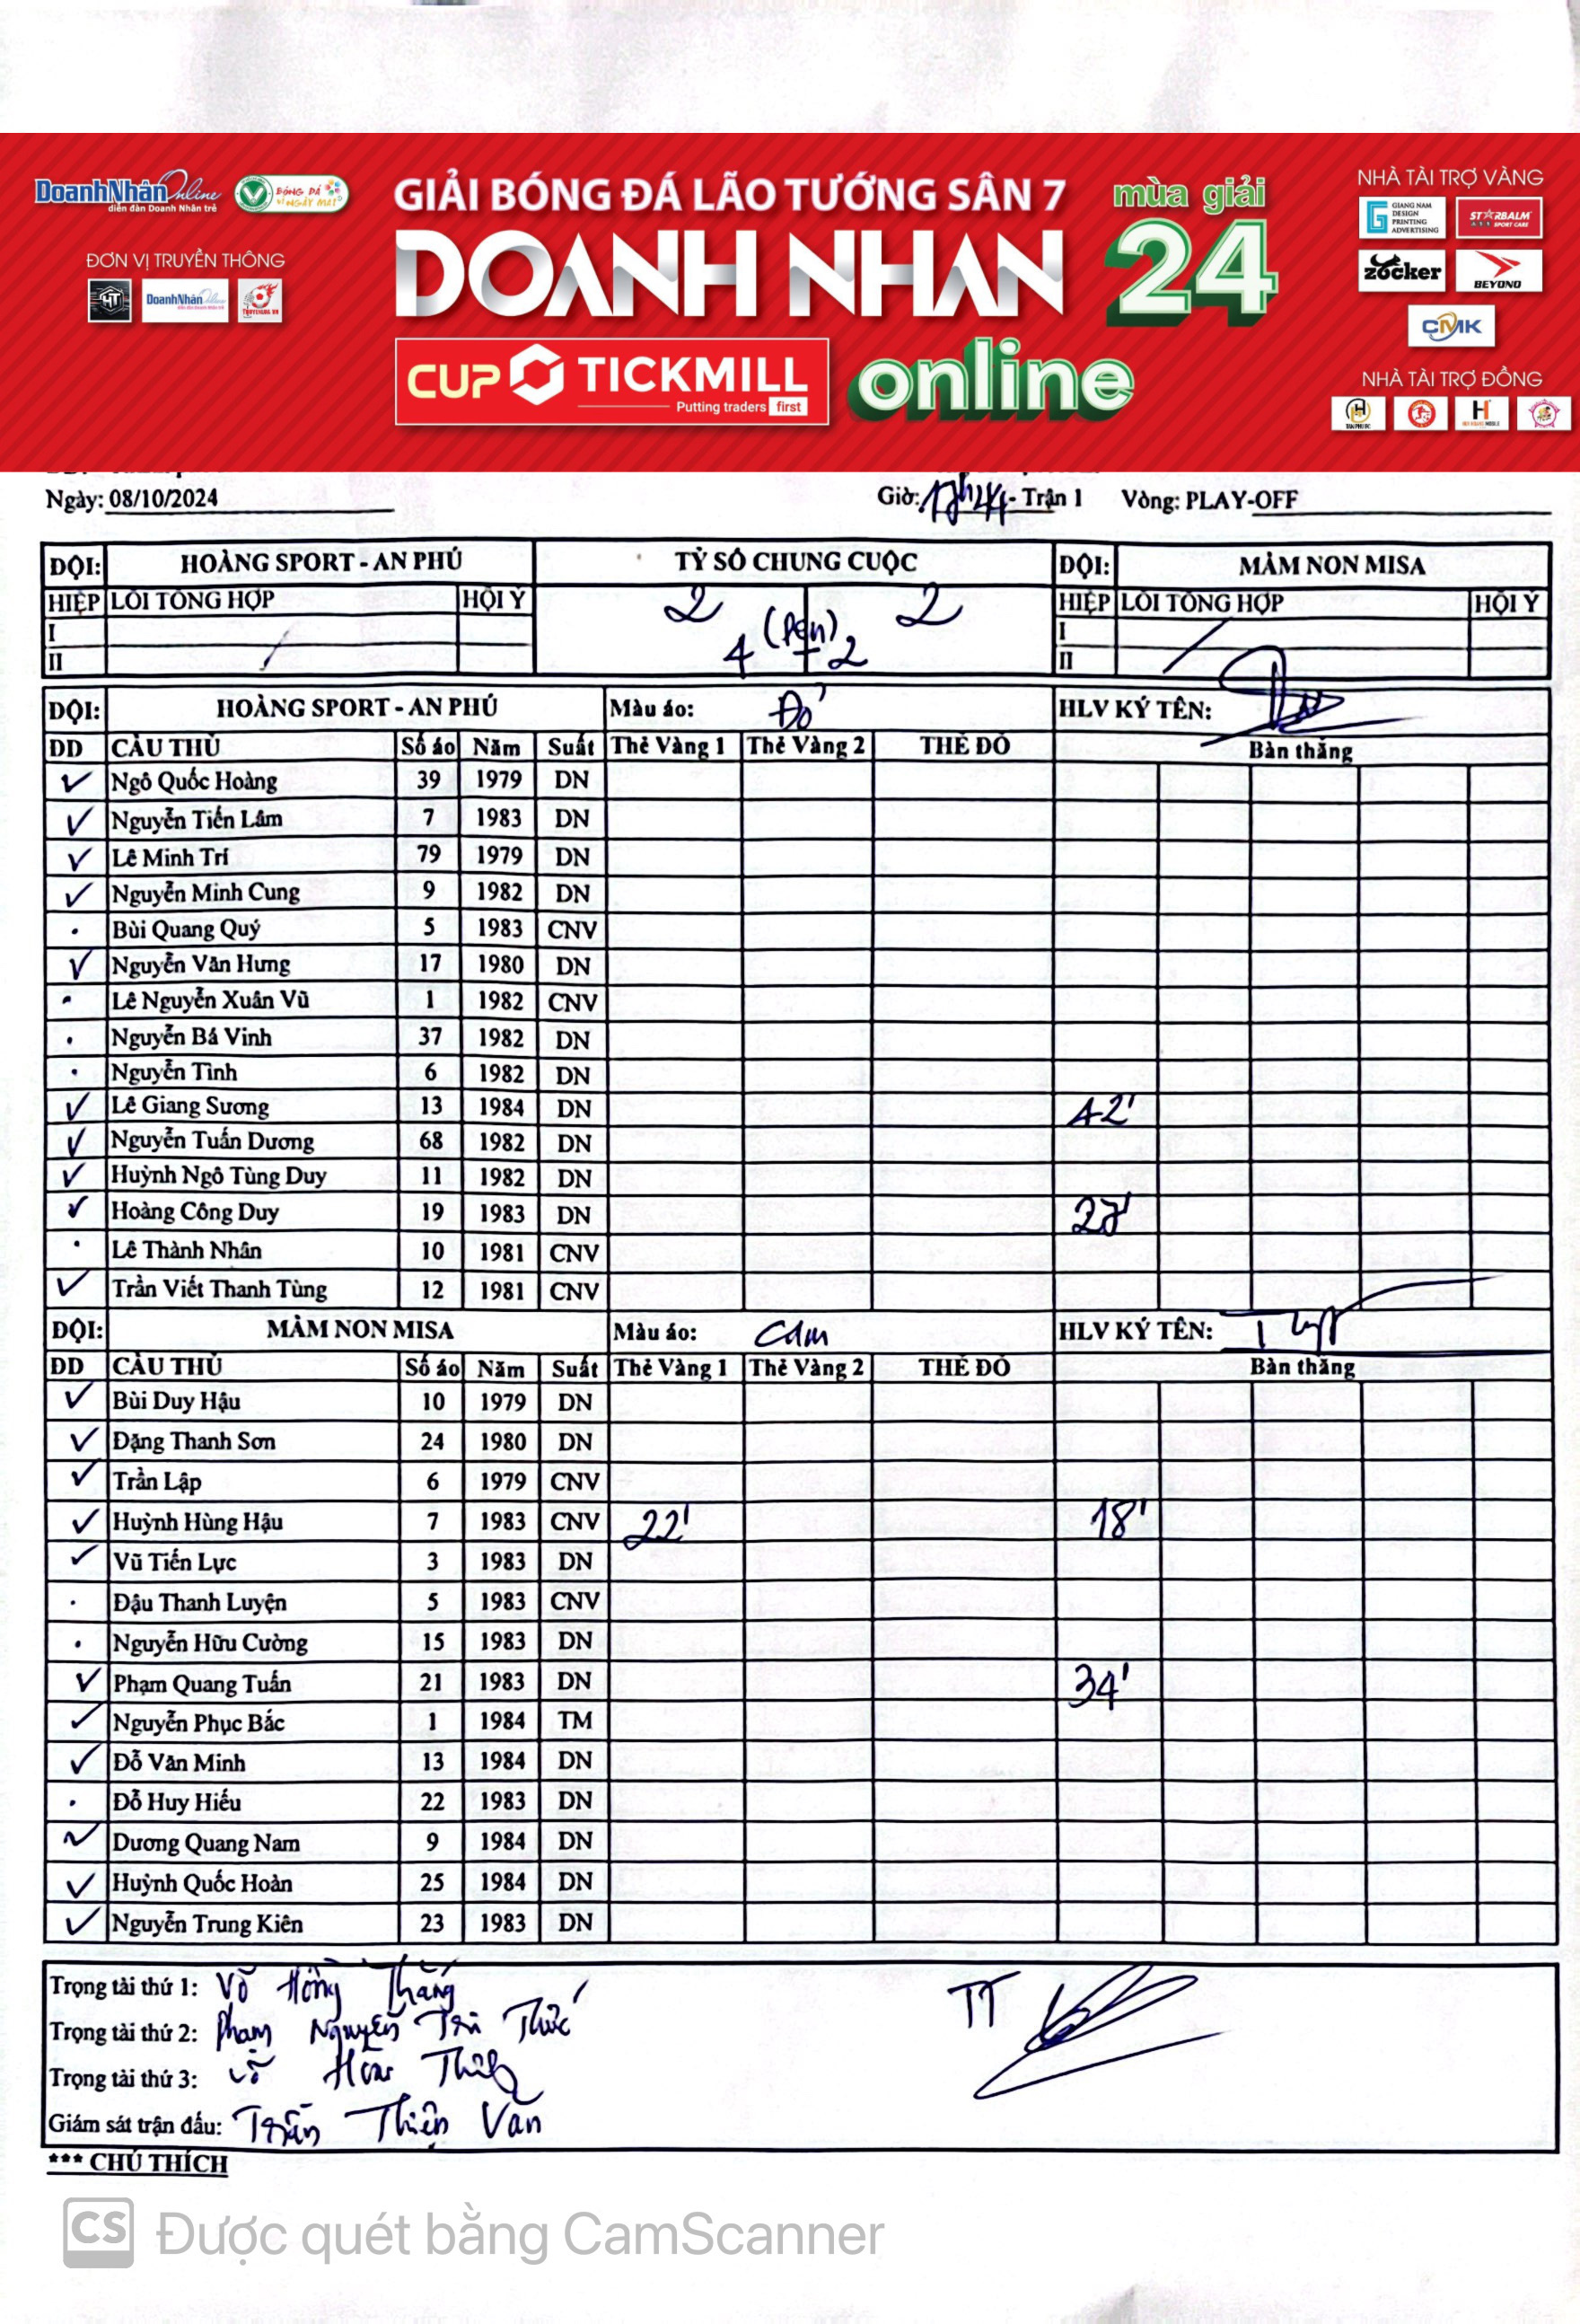 DoanhNhân Online
diễn đàn Doanh Nhân trẻ
BÓNG ĐÁ
VÌ NGÀY MAI
ĐƠN VỊ TRUYỀN THÔNG
HT
DoanhNhân
GIẢI BÓNG ĐÁ LÃO TƯỚNG SÂN 7
DOANH NHAN
CUP TICKMILL
Putting traders first
mùa giải
24
online
NHÀ TÀI TRỢ VÀNG
GIANG NAM
DESIGN
PRINTING
ADVERTISING
STARBALM
SPORT CARE
zocker
BEYONO
CMK
NHÀ TÀI TRỢ ĐỒNG
Ngày: 08/10/2024 Giờ: - Trận 1 Vòng: PLAY-OFF
ĐỘI: HOÀNG SPORT - AN PHÚ TỶ SỐ CHUNG CUỘC ĐỘI: MẦM NON MISA
HIỆP LỖI TỔNG HỢP HỘI Ý 2 2 HIỆP LỖI TỔNG HỢP HỘI Ý
I (Pen) I
II 4 - 2 II
ĐỘI: HOÀNG SPORT - AN PHÚ Màu áo: Đỏ HLV KÝ TÊN:
DD CẦU THỦ Số áo Năm Suất Thẻ Vàng 1 Thẻ Vàng 2 THẺ ĐỎ Bàn thắng
Ngô Quốc Hoàng 39 1979 DN
Nguyễn Tiến Lâm 7 1983 DN
Lê Minh Trí 79 1979 DN
Nguyễn Minh Cung 9 1982 DN
Bùi Quang Quý 5 1983 CNV
Nguyễn Văn Hưng 17 1980 DN
Lê Nguyễn Xuân Vũ 1 1982 CNV
Nguyễn Bá Vinh 37 1982 DN
Nguyễn Tình 6 1982 DN
Lê Giang Sương 13 1984 DN 42'
Nguyễn Tuấn Dương 68 1982 DN
Huỳnh Ngô Tùng Duy 11 1982 DN
Hoàng Công Duy 19 1983 DN 27'
Lê Thành Nhân 10 1981 CNV
Trần Viết Thanh Tùng 12 1981 CNV
ĐỘI: MẦM NON MISA Màu áo: Cam HLV KÝ TÊN:
ĐD CẦU THỦ Số áo Năm Suất Thẻ Vàng 1 Thẻ Vàng 2 THẺ ĐỎ Bàn thắng
Bùi Duy Hậu 10 1979 DN
Đặng Thanh Sơn 24 1980 DN
Trần Lập 6 1979 CNV
Huỳnh Hùng Hậu 7 1983 CNV 22' 18'
Vũ Tiến Lực 3 1983 DN
Đậu Thanh Luyện 5 1983 CNV
Nguyễn Hữu Cường 15 1983 DN
Phạm Quang Tuấn 21 1983 DN 34'
Nguyễn Phục Bắc 1 1984 TM
Đỗ Văn Minh 13 1984 DN
Đỗ Huy Hiếu 22 1983 DN
Dương Quang Nam 9 1984 DN
Huỳnh Quốc Hoàn 25 1984 DN
Nguyễn Trung Kiên 23 1983 DN
Trọng tài thứ 1: Võ Hồng Thắng TT
Trọng tài thứ 2: Phạm Nguyễn Tri Thức
Trọng tài thứ 3: Võ
Giám sát trận đấu: Trần Thiện Văn
*** CHÚ THÍCH
CS Được quét bằng CamScanner